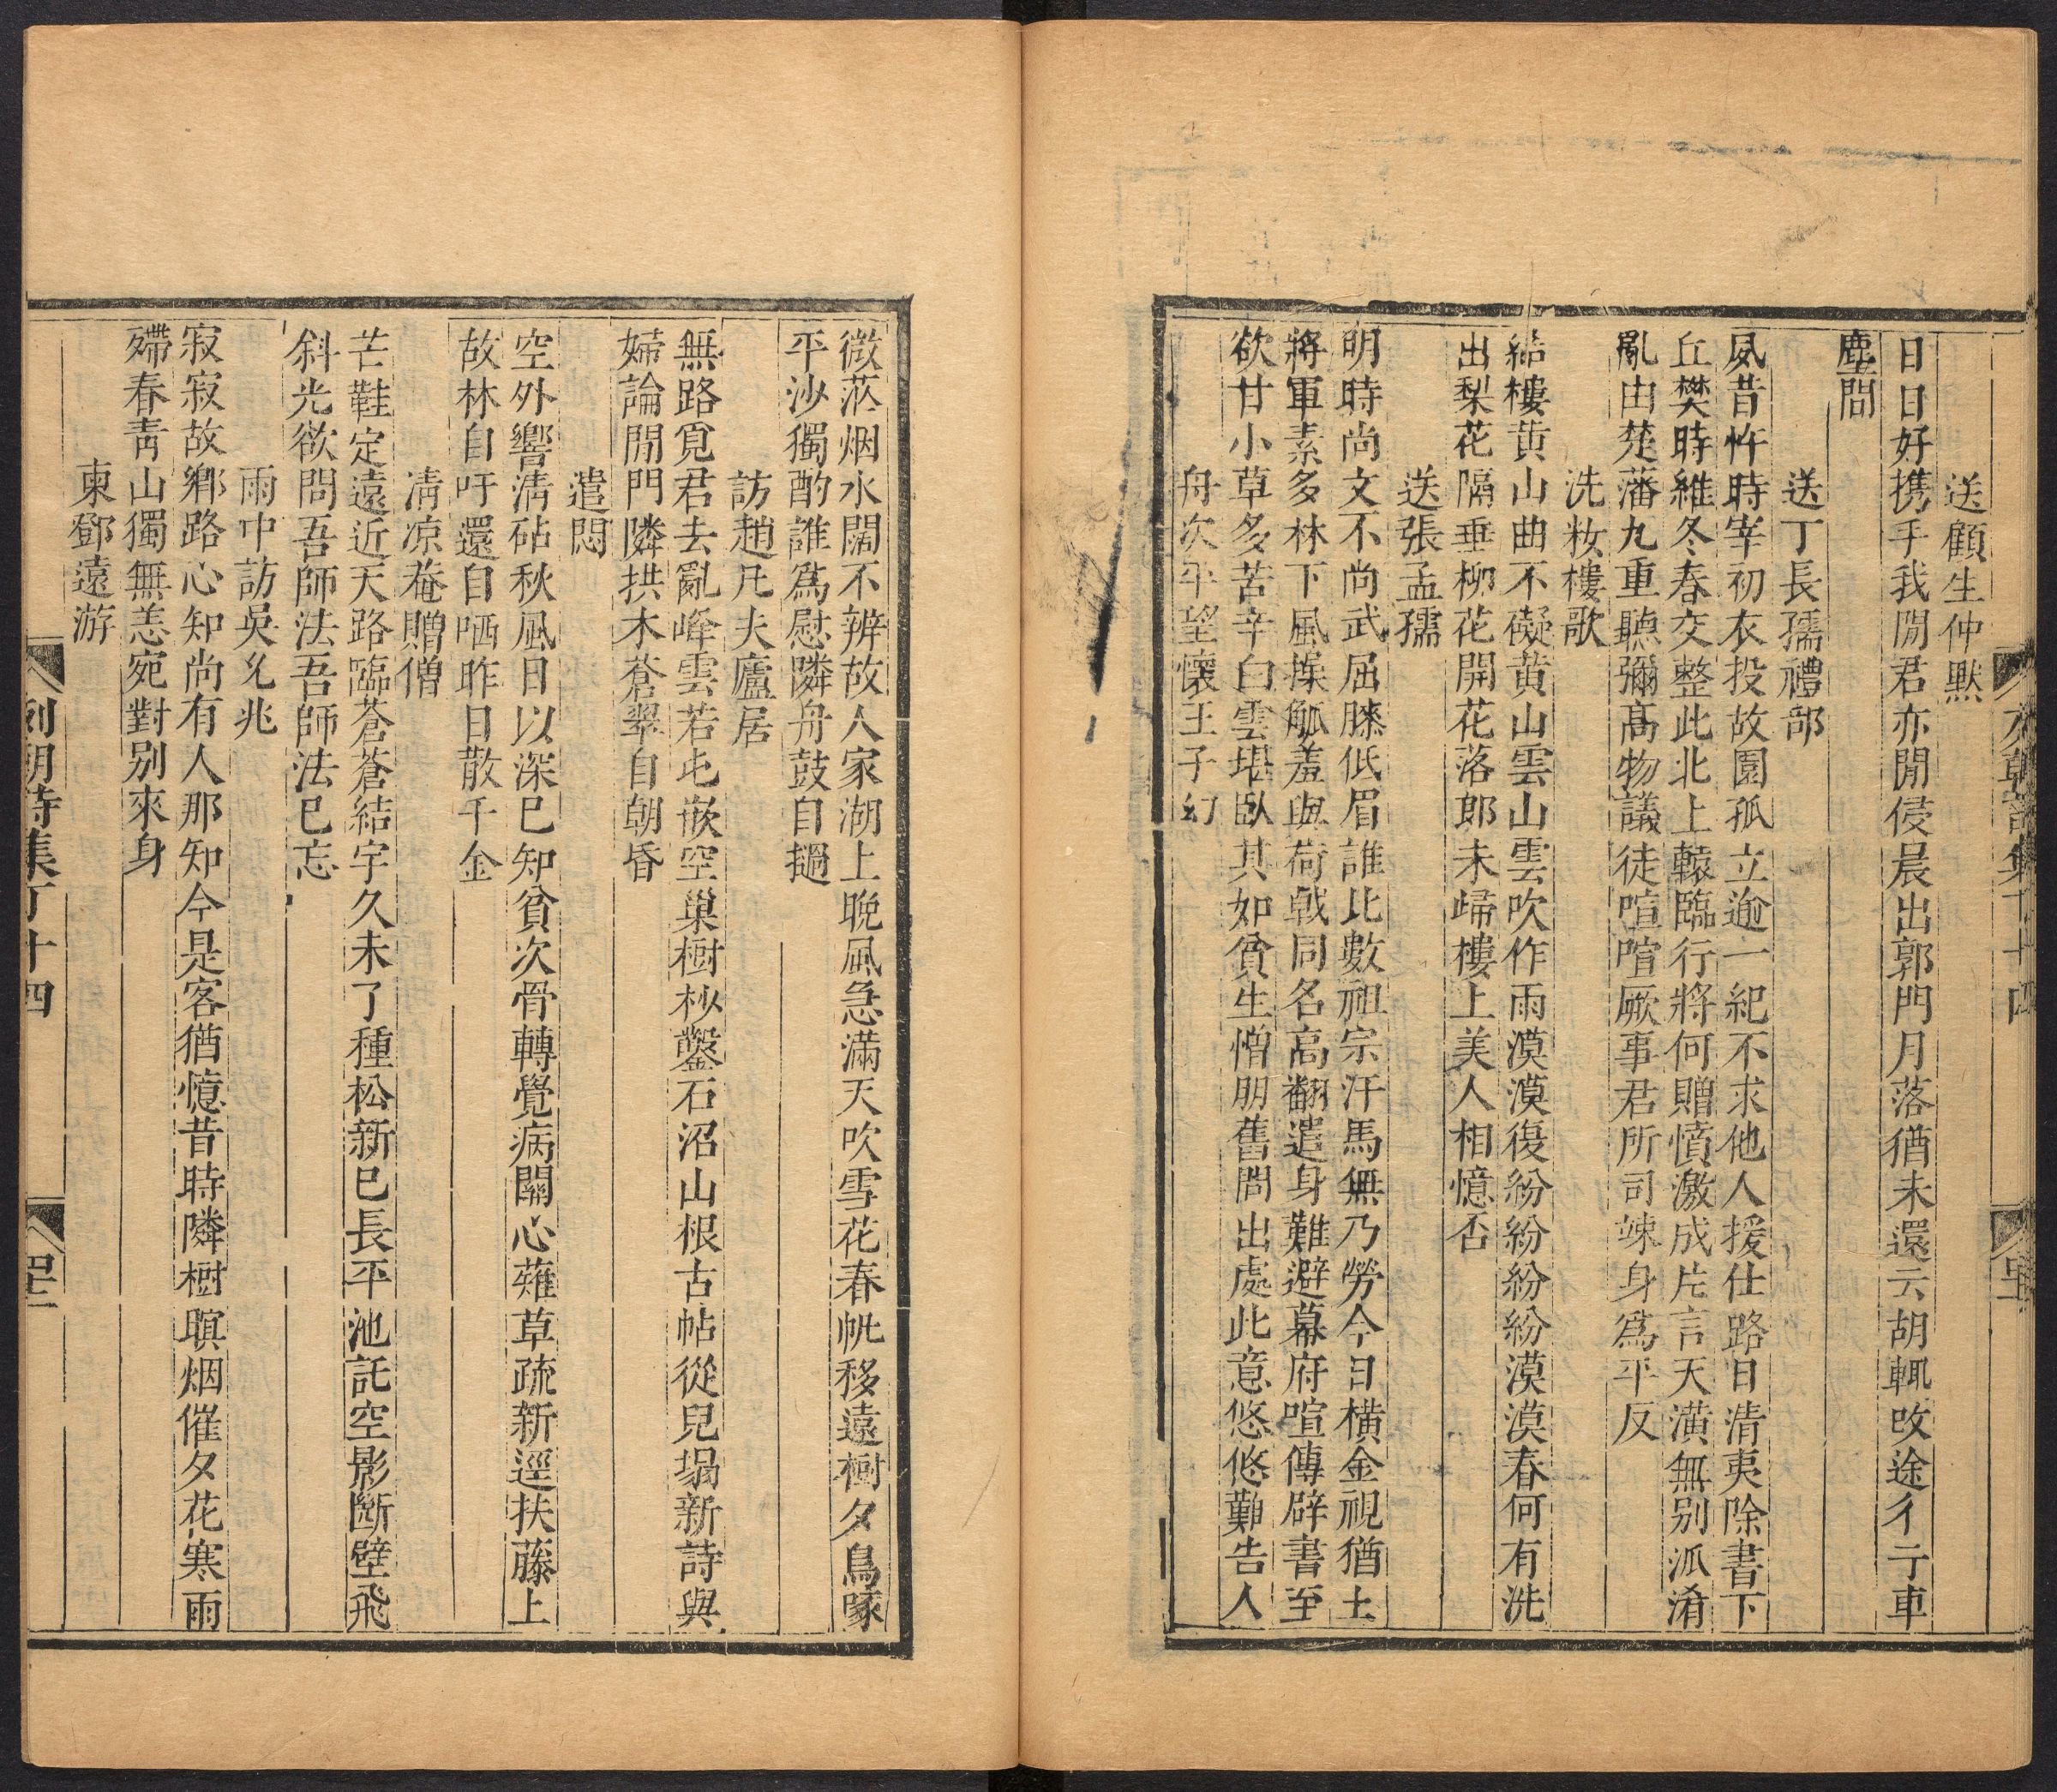 送顧生仲默
日日好携手我閒君亦閒侵晨出郭門月落猶未還云胡輒改途彳亍車
塵間
送丁長孺禮部
夙昔忤時宰初衣投故園孤立逾一紀不求他人援仕路日清夷除書下
丘樊時維冬春交整此北上轅臨行將何贈憤激成片言天潢無别派淆
亂由楚藩九重聽彌高物議徒喧喧厥事君所司竦身爲平反
洗妝樓歌
結樓黄山曲不礙黄山雲山雲吹作雨漠漠復紛紛紛紛漠漠春何有洗
出梨花隔垂柳花開花落郎未歸樓上美人相憶否
送張孟孺
明時尚文不尚武屈膝低眉誰比數祖宗汗馬無乃勞今日橫金視猶土
將軍素多林下風操觚羞與荷戟同名高翻遣身難避幕府喧傳辟書至
欲甘小草多苦辛白雲堪臥其如貧生憎朋舊問出處此意悠悠難告人
舟次平望懷王子幻
微茫烟水闊不辨故人家湖上晚風急滿天吹雪花春帆移遠樹夕鳥啄
平沙獨酌誰爲慰隣舟鼓自撾
訪趙凡夫廬居
無路覓君去亂峰雲若屯嵌空巢樹杪鑿石沼山根古帖從兒搨新詩與
婦論閒門隣拱木蒼翠自朝昏
遣悶
空外響清砧秋風日以深已知貧次骨轉覺病關心薙草疏新逕扶藤上
故林自吁還自哂昨日散千金
清凉菴贈僧
芒鞋定遠近天路臨蒼蒼結宇久未了種松新已長平池託空影斷壁飛
斜光欲問吾師法吾師法已忘
雨中訪吳允兆
寂寂故鄉路心知尚有人那知今是客猶憶昔時隣樹暝烟催夕花寒雨
殢春靑山獨無恙宛對别來身
柬鄧遠游
列朝詩集丁十四